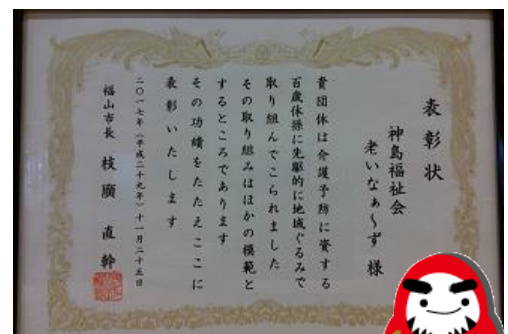 表彰状
神島福祉会
老いなぁ～ず 様
貴団体は介護予防に資する
百歳体操に先駆的に地域ぐるみで
取り組んでこられました
その取り組みはほかの模範と
するところであります
その功績をたたえここに
表彰いたします
二〇一七年(平成二十九年)十一月二十五日
福山市長 枝廣 直幹